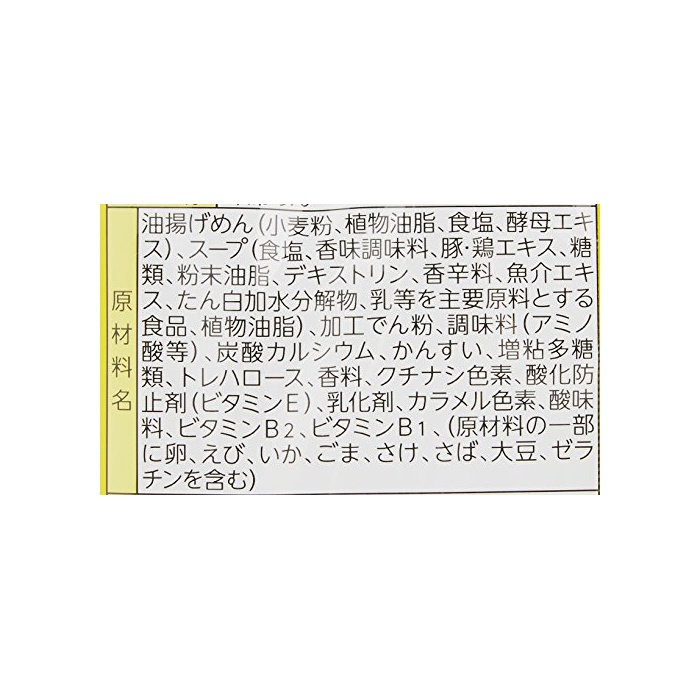 原材料名
油揚げめん(小麦粉、植物油脂、食塩、酵母エキ
ス)、スープ(食塩、香味調味料、豚・鶏エキス、糖
類、粉末油脂、デキストリン、香辛料、魚介エキ
ス、たん白加水分解物、乳等を主要原料とする
食品、植物油脂)、加工でん粉、調味料(アミノ
酸等)、炭酸カルシウム、かんすい、増粘多糖
類、トレハロース、香料、クチナシ色素、酸化防
止剤(ビタミンE)、乳化剤、カラメル色素、酸味
料、ビタミンB2、ビタミンB1、(原材料の一部
に卵、えび、いか、ごま、さけ、さば、大豆、ゼラ
チンを含む)